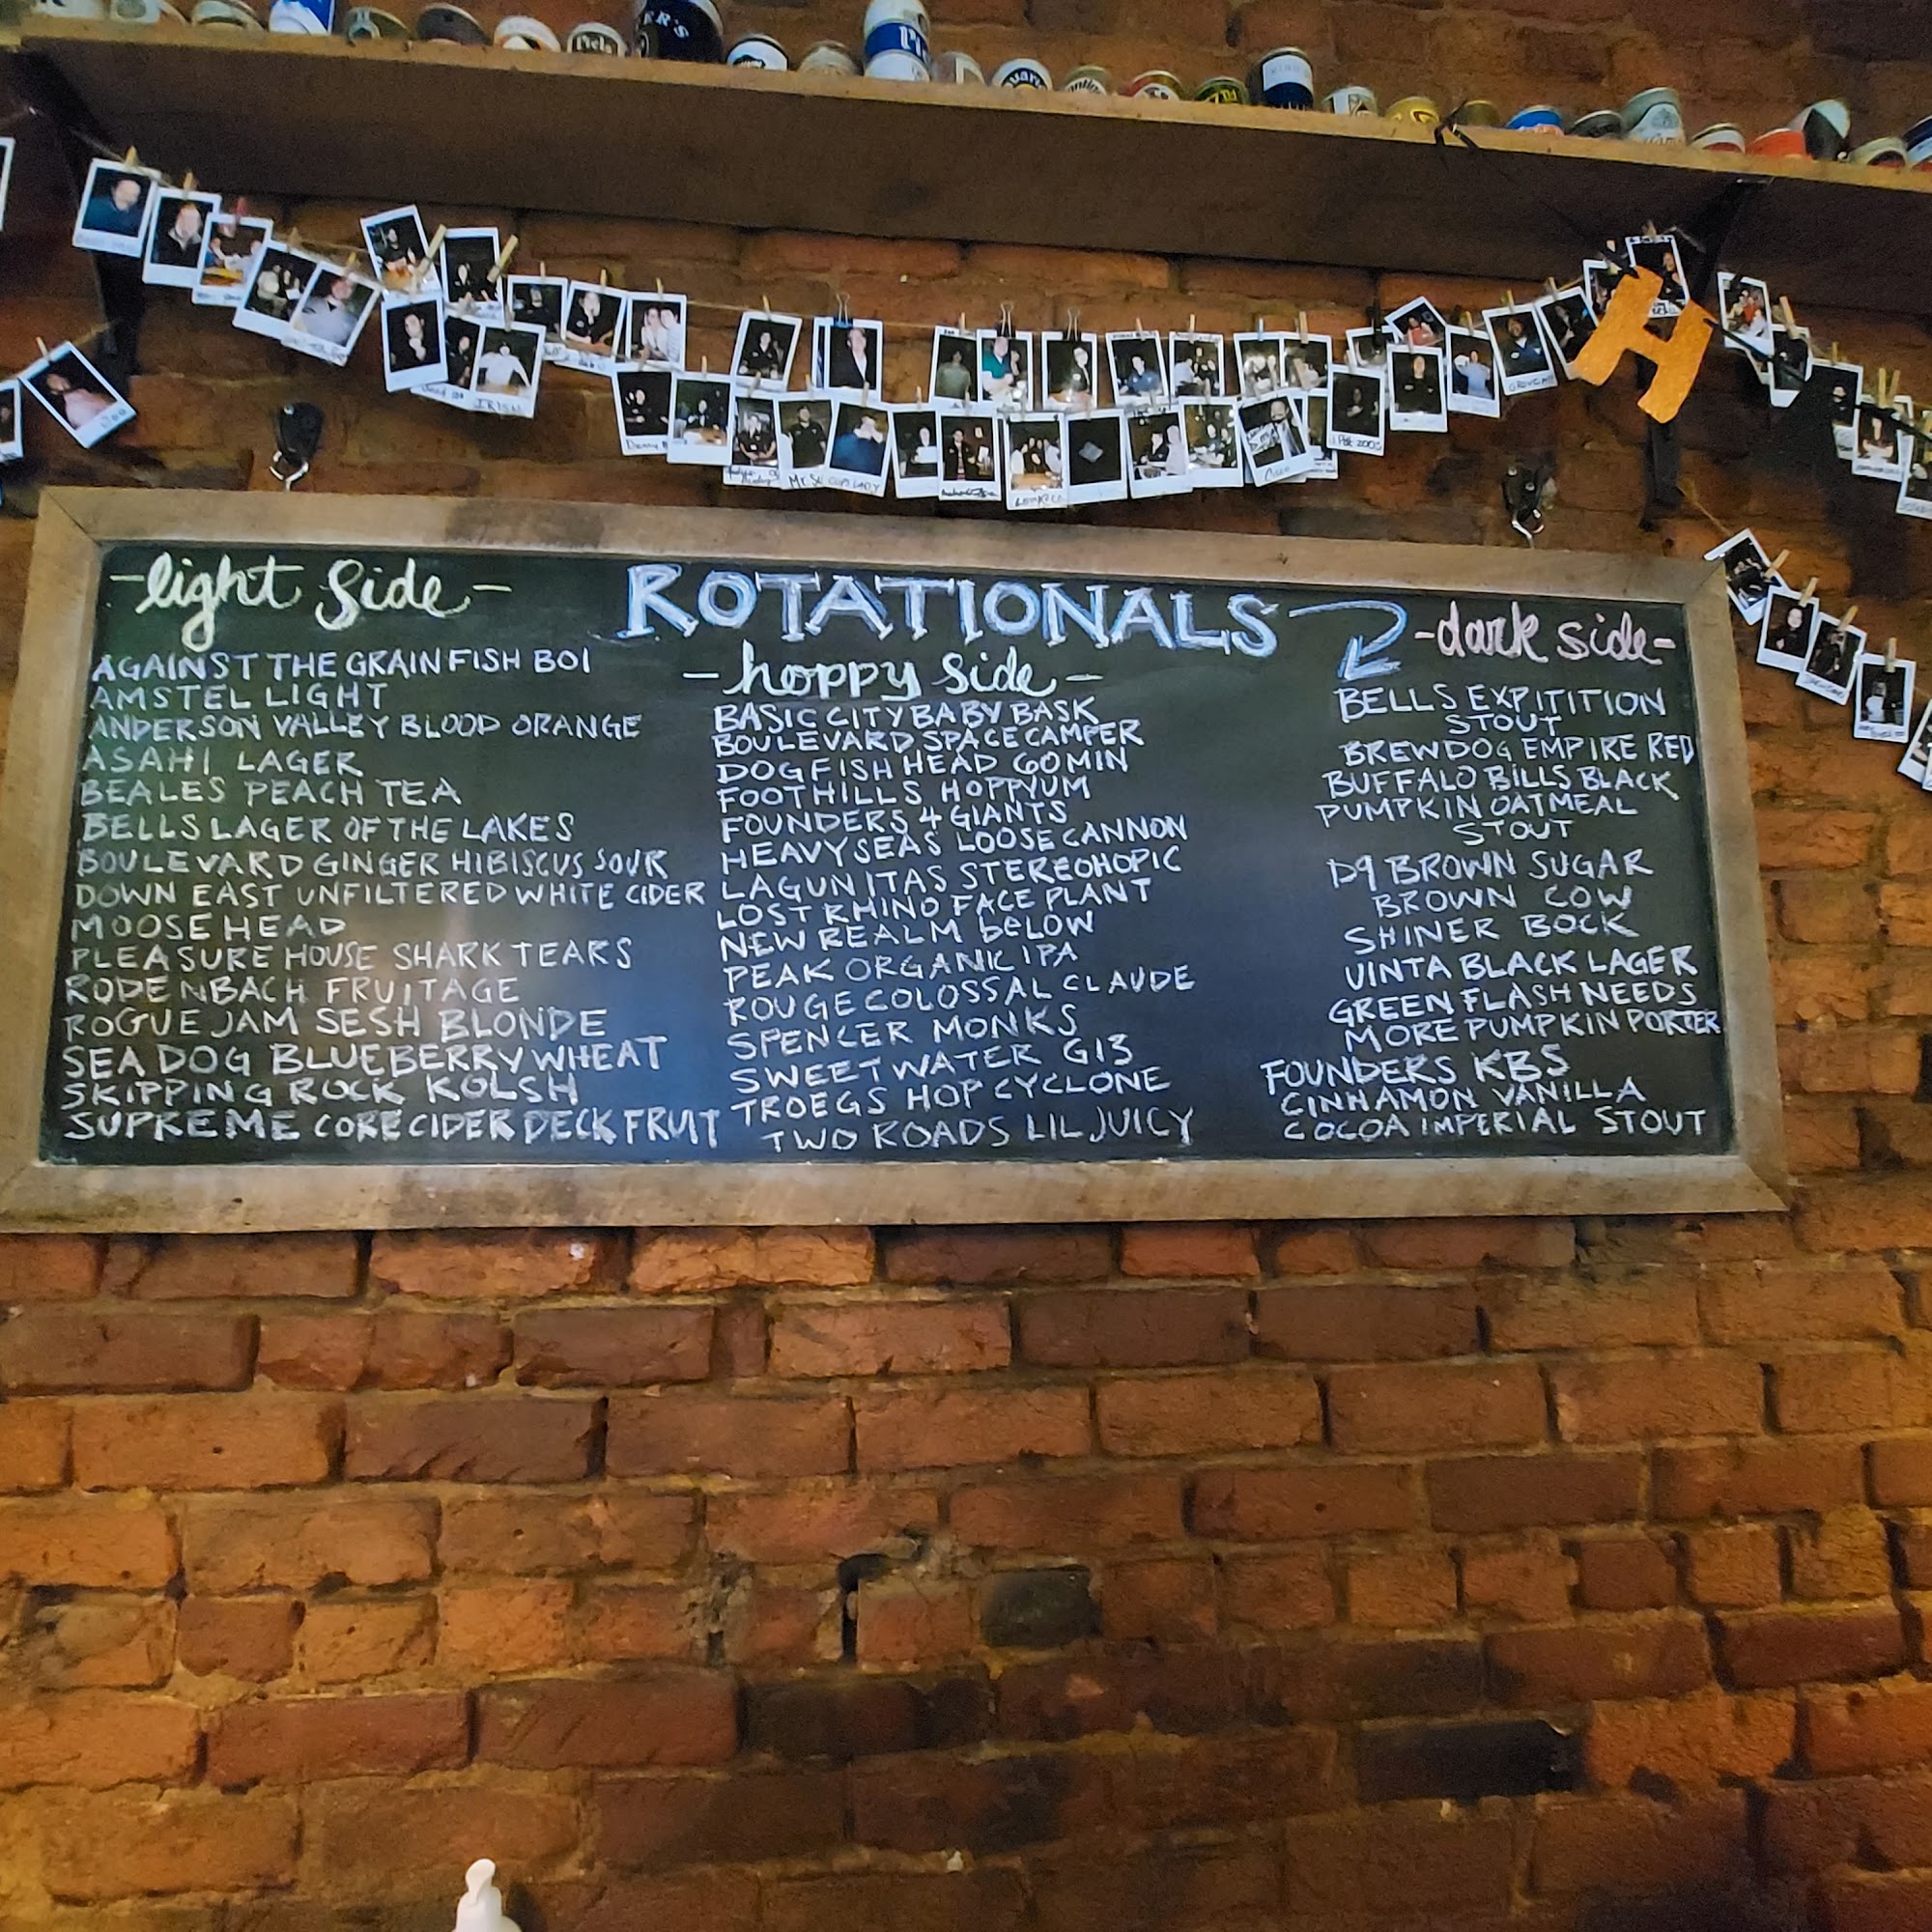 -light side-
AGAINST THE GRAIN FISH BOI
AMSTEL LIGHT
ANDERSON VALLEY BLOOD ORANGE
ASAHI LAGER
BEALES PEACH TEA
BELLS LAGER OF THE LAKES
BOULEVARD GINGER HIBISCUS SOUR
DOWN EAST UNFILTERED WHITE CIDER
MOOSEHEAD
PLEASURE HOUSE SHARK TEARS
RODENBACH FRUITAGE
ROGUE JAM SESH BLONDE
SEA DOG BLUEBERRY WHEAT
SKIPPING ROCK KOLSH
SUPREME CORE CIDER DECK FRUIT
ROTATIONALS
-hoppy side-
BASIC CITY BABY BASK
BOULEVARD SPACE CAMPER
DOGFISH HEAD 60 MIN
FOOTHILLS HOPPYUM
FOUNDERS 4 GIANTS
HEAVY SEAS LOOSE CANNON
LAGUNITAS STEREOHOPIC
LOST RHINO FACE PLANT
NEW REALM beLOW
PEAK ORGANIC IPA
ROUGE COLOSSAL CLAUDE
SPENCER MONKS
SWEETWATER G13
TROEGS HOP CYCLONE
TWO ROADS LIL JUICY
-dark side-
BELLS EXPITITION
STOUT
BREWDOG EMPIRE RED
BUFFALO BILLS BLACK
PUMPKIN OATMEAL
STOUT
D9 BROWN SUGAR
BROWN COW
SHINER BOCK
UINTA BLACK LAGER
GREEN FLASH NEEDS
MORE PUMPKIN PORTER
FOUNDERS KBS
CINNAMON VANILLA
COCOA IMPERIAL STOUT
H